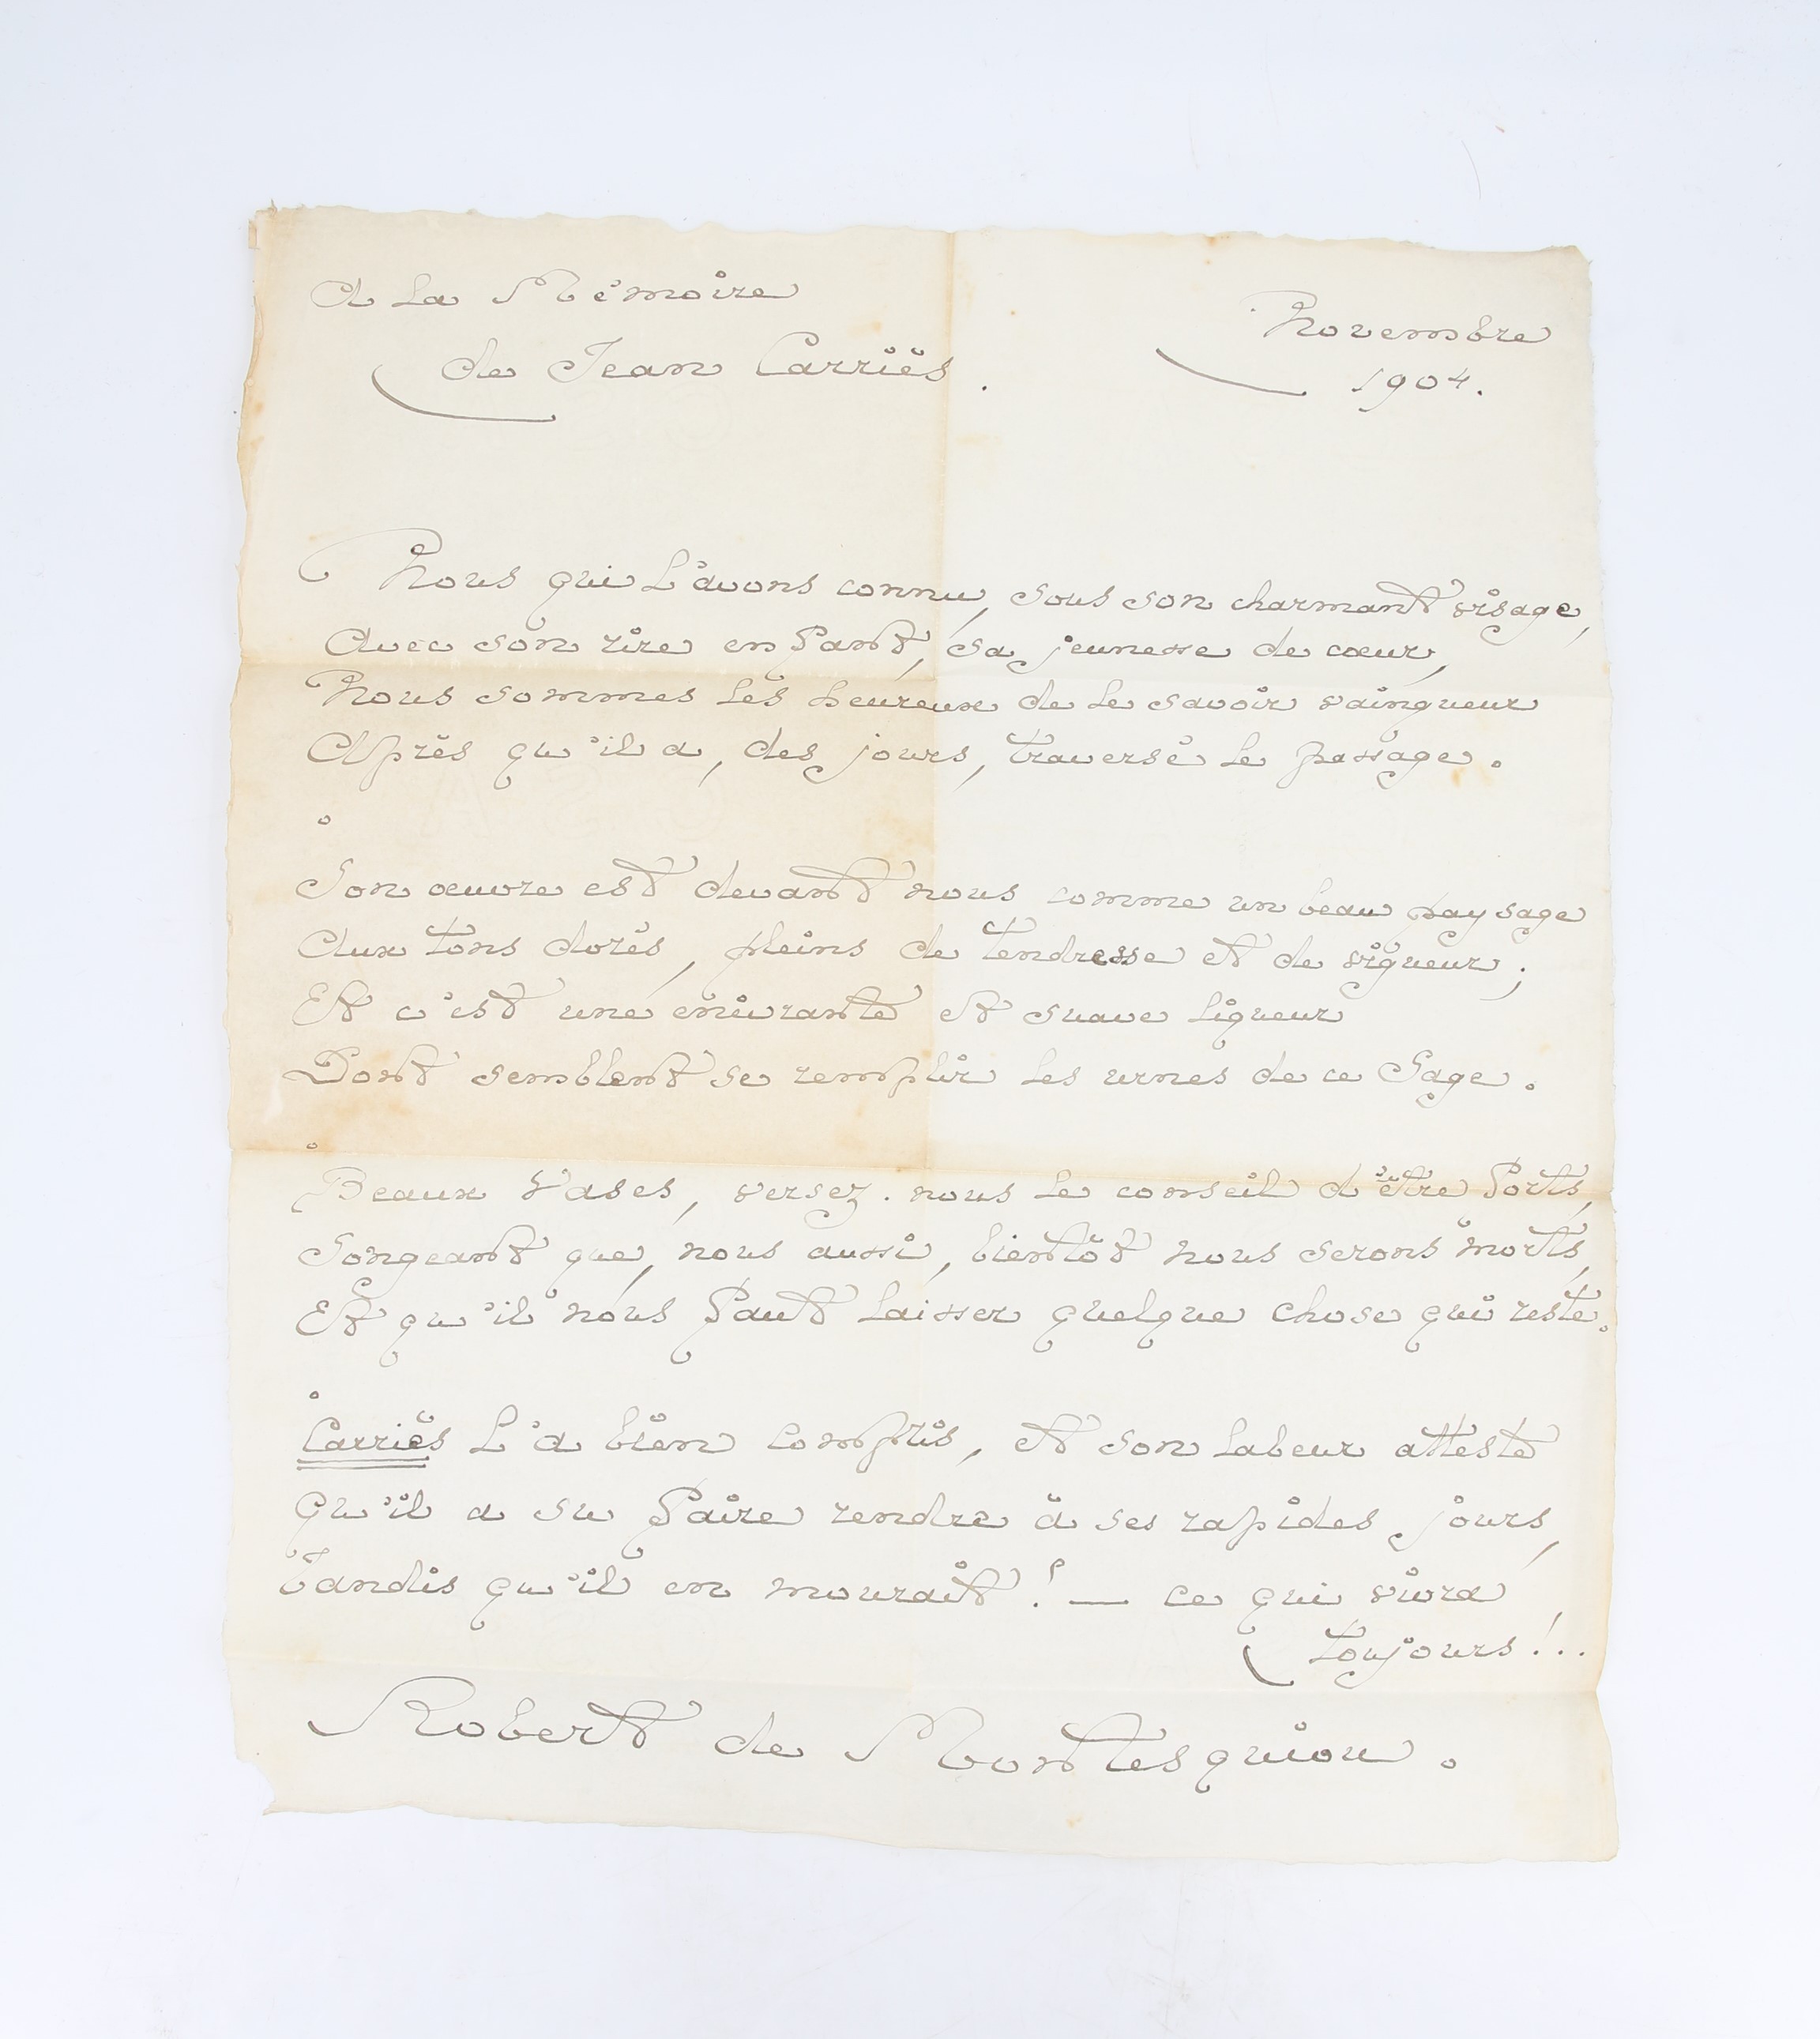 A la Mémoire
de Jean Carriès.
Novembre
1904.
Nous qui l'avons connu, sous son charmant visage,
Avec son rire enfant, sa jeunesse de cœur,
Nous sommes les heureux de le savoir vainqueur
Après qu'il a, des jours, traversé le passage.
Son œuvre est devant nous comme un beau paysage
Aux tons dorés, pleins de tendresse et de vigueur;
Et c'est une enivrante et suave liqueur
Dont semblent se remplir les urnes de ce Sage.
Beaux Vases, versez-nous le conseil d'être forts,
Songeant que, nous aussi, bientôt nous serons morts,
Et qu'il nous faut laisser quelque chose qui reste.
Carriès l'a bien compris, et son labeur atteste
Qu'il a su faire rendre à ses rapides jours,
Tandis qu'il en mourait! — ce qui vivra
toujours!..
Robert de Montesquiou.